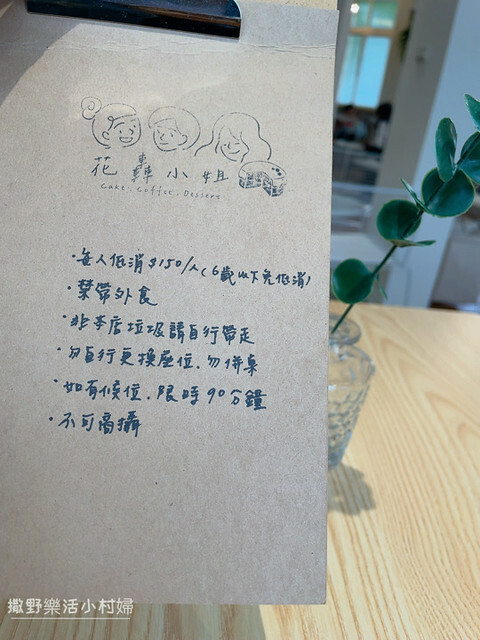 花轟小姐
Cake. Coffee. Dessert
·每人低消$150/人(6歲以下免低消)
·禁帶外食
·非本店垃圾請自行帶走
·勿自行更換座位.勿併桌
·如有候位.限時90分鐘
·不可商攝
撒野樂活小村婦